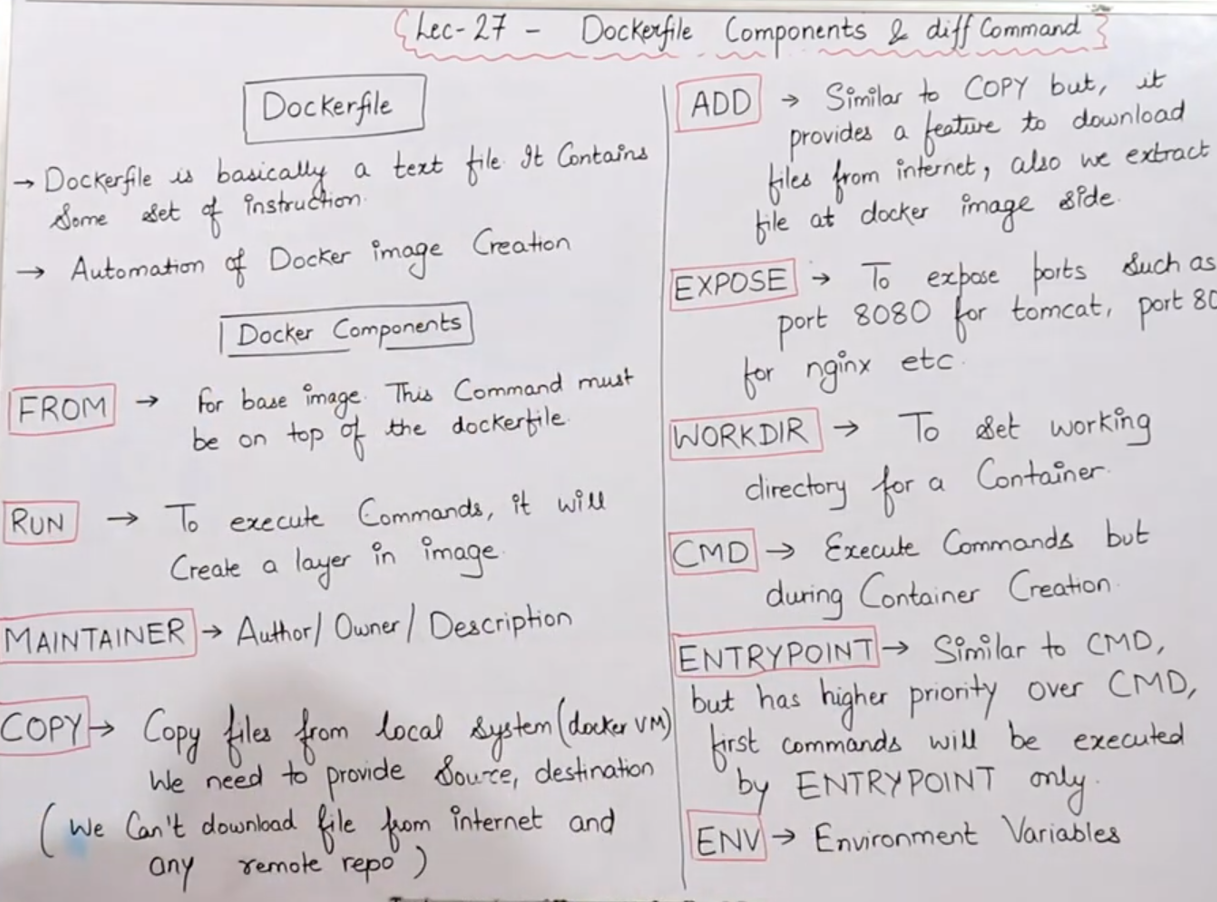 Lec-27 - Dockerfile Components & diff Command
Dockerfile
→ Dockerfile is basically a text file. It Contains
Some set of instruction.
→ Automation of Docker image Creation
Docker Components
FROM → for base image. This Command must
be on top of the dockerfile.
RUN → To execute Commands, it will
Create a layer in image.
MAINTAINER → Author/ Owner/ Description
COPY → Copy files from local system (docker VM)
We need to provide Source, destination
(We Can't download file from internet and
any remote repo)
ADD → Similar to COPY but, it
provides a feature to download
files from internet, also we extract
file at docker image side.
EXPOSE → To expose ports such as
port 8080 for tomcat, port 80
for nginx etc.
WORKDIR → To set working
directory for a Container.
CMD → Execute Commands but
during Container Creation.
ENTRYPOINT → Similar to CMD,
but has higher priority over CMD,
first commands will be executed
by ENTRYPOINT only.
ENV → Environment Variables